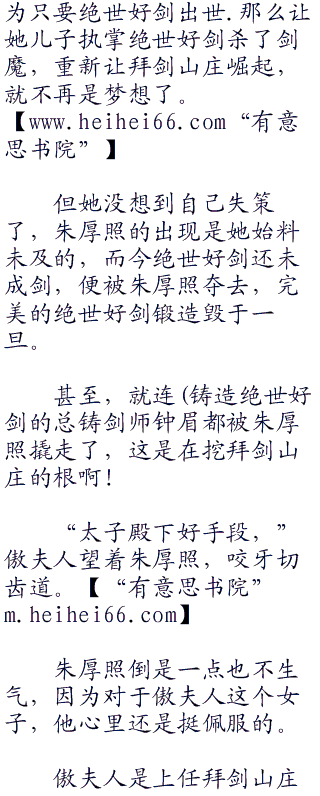 为只要绝世好剑出世.那么让
她儿子执掌绝世好剑杀了剑
魔，重新让拜剑山庄崛起，
就不再是梦想了。
【www.heihei66.com“有意
思书院”】
但她没想到自己失策
了，朱厚照的出现是她始料
未及的，而今绝世好剑还未
成剑，便被朱厚照夺去，完
美的绝世好剑锻造毁于一
旦。
甚至，就连(铸造绝世好
剑的总铸剑师钟眉都被朱厚
照撬走了，这是在挖拜剑山
庄的根啊!
“太子殿下好手段，”
傲夫人望着朱厚照，咬牙切
齿道。【“有意思书院”
m.heihei66.com】
朱厚照倒是一点也不生
气，因为对于傲夫人这个女
子，他心里还是挺佩服的。
傲夫人是上任拜剑山庄